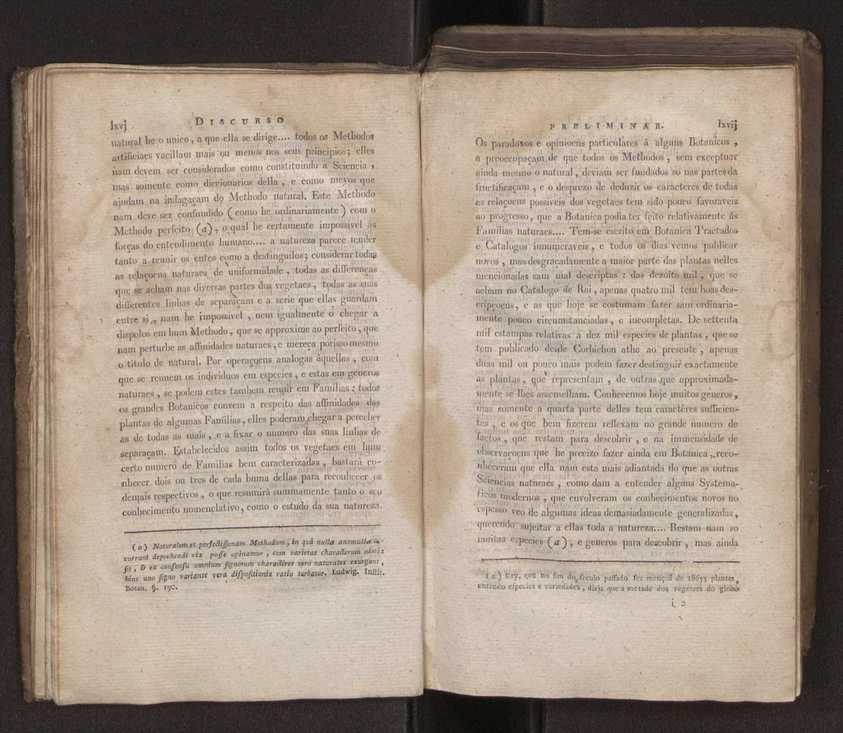 lxvj
DISCURSO
natural he o unico, a que ella se dirige.... todos os Methodos
artificiaes vacillam mais ou menos nos seus principios; elles
nam devem ser considerados como constituindo a Sciencia,
mas somente como diccionarios della, e como meyos que
ajudam na indagaçam do Methodo natural. Este Methodo
nam deve ser confundido (como he ordinariamente) com o
Methodo perfeito (a), o qual he certamente impossivel ás
forças do entendimento humano.... a natureza parece tender
tanto a reunir os entes como a destinguilos; considerar todas
as relaçoens naturaes de uniformidade, todas as differenças
que se acham nas diversas partes dos vegetaes, todas as suas
differentes linhas de separaçam e a serie que ellas guardam
entre si, nam he impossivel, nem igualmente o chegar a
dispolos em hum Methodo, que se approxime ao perfeito, que
nam perturbe as affinidades naturaes, e mereça porisso mesmo
o titulo de natural. Por operaçoens analogas áquellas, com
que se reunem os individuos em especies, e estas em generos
naturaes, se podem estes tambem reunir em Familias: todos
os grandes Botanicos convem a respeito das affinidades das
plantas de algumas Familias, elles poderam chegar a perceber
as de todas as mais, e a fixar o numero das suas linhas de
separaçam. Estabelecidos assim todos os vegetaes em hum
certo numero de Familias bem caracterizadas, bastará co-
nhecer dois ou tres de cada huma dellas para reconhecer os
demais respectivos, o que resumirá summamente tanto o seu
conhecimento nomenclativo, como o estudo da sua natureza.
(a) Naturalem et perfectissimam Methodum, in quâ nullæ anomaliæ oc-
currant deprehendi vix posse opinamur, cum varietas characterum nimia
sit, & ex consensu omnium signorum characteres vero naturales exurgant,
hinc uno signo variante vera dispositionis ratio turbatur. Ludwig. Instit.
Botan. §. 190.
PRELIMINAR.
lxvij
Os paradoxos e opinioens particulares á alguns Botanicos,
a preoccupaçam de que todos os Methodos, sem exceptuar
ainda mesmo o natural, deviam ser fundados so nas partes da
fructificaçam, e o desprezo de deduzir os caracteres de todas
as relaçoens possiveis dos vegetaes tem sido pouco favoraveis
ao progresso, que a Botanica podia ter feito relativamente ás
Familias naturaes.... Tem-se escrito em Botanica Tractados
e Catalogos innumeraveis, e todos os dias vemos publicar
novos, mas desgraçadamente a maior parte das plantas nelles
mencionadas sam mal descriptas: das dezoito mil, que se
acham no Catalogo de Rai, apenas quatro mil tem boas des-
cripçoens, e as que hoje se costumam fazer sam ordinaria-
mente pouco circumstanciadas, e incompletas. De settenta
mil estampas relativas a dez mil especies de plantas, que se
tem publicado desde Corbichon athe ao presente, apenas
duas mil ou pouco mais podem fazer destinguir exactamente
as plantas, que representam, de outras que approximada-
mente se lhes assemelham. Conhecemos hoje muitos generos,
mas somente a quarta parte delles tem caractéres sufficien-
tes, e os que bem fizerem reflexam no grande numero de
factos, que restam para descobrir, e na immensidade de
observaçoens que he precizo fazer ainda em Botanica, reco-
nheceram que ella nam esta mais adiantada do que as outras
Sciencias naturaes, como dam a entender alguns Systema-
ticos modernos, que envolveram os conhecimentos novos no
espesso veo de algumas ideas demasiadamente generalizadas,
querendo sujeitar a ellas toda a natureza.... Restam nam so
muitas especies (a), e generos para descobrir, mas ainda
(a) Rey, que no fim do seculo passado fez mençaõ de 18655 plantes,
entendo especies e variedades, dizia que a metade dos vegetaes do globo
i 2